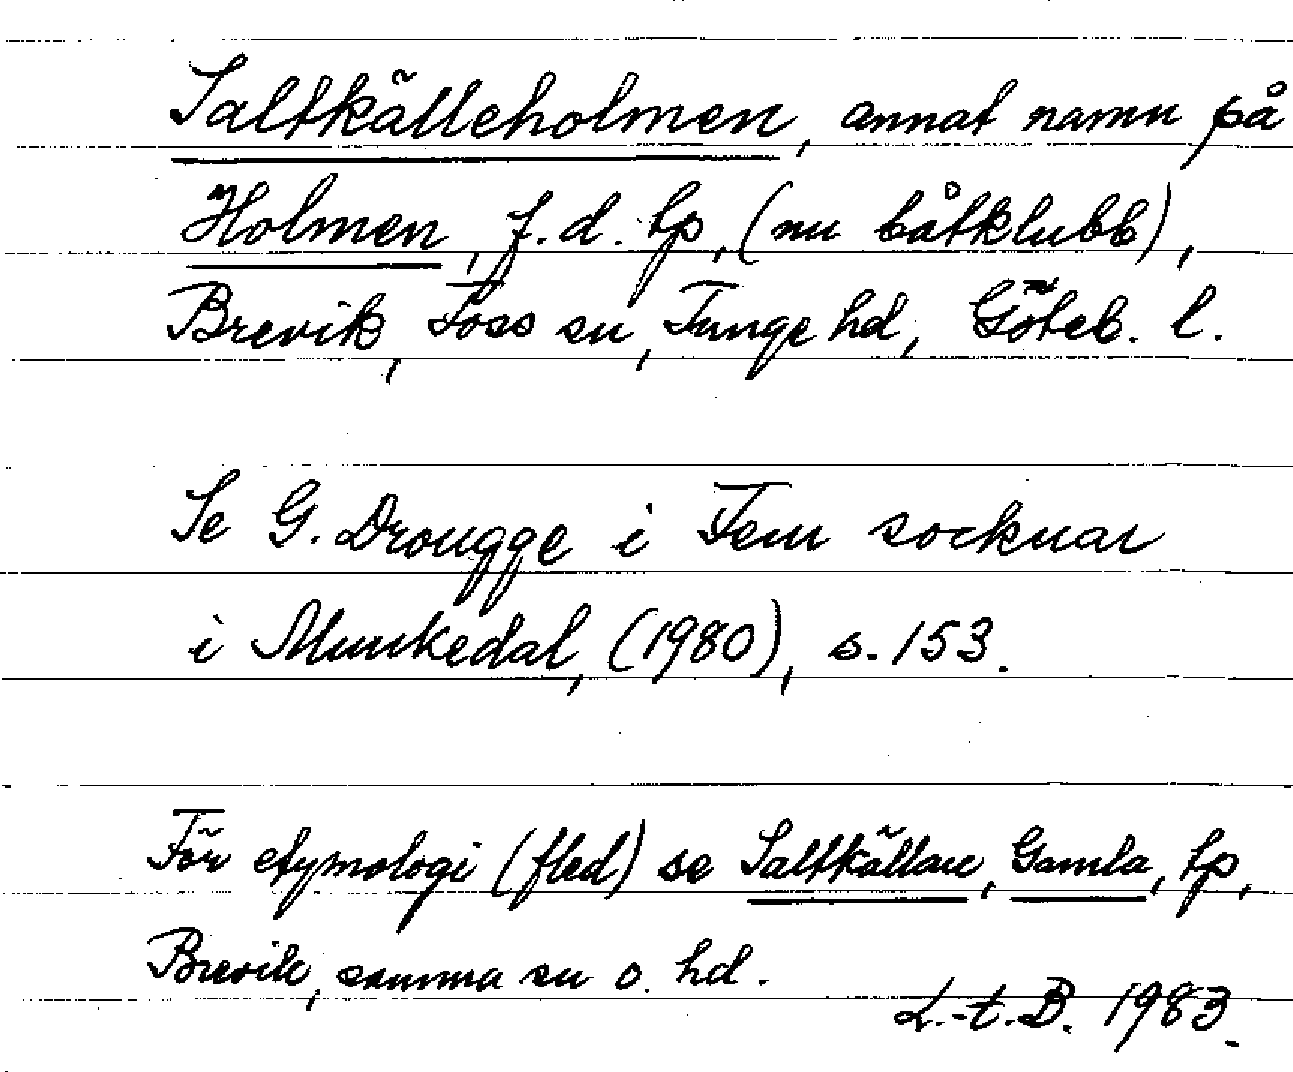 Saltkälleholmen, annat namn på
Holmen, f.d. lp, (nu båtklubb),
Brevik, Foss sn, Tunge hd, Göteb. l.
Se G. Drougge i Fem socknar
i Munkedal, (1980), s. 153.
För etymologi (fled) se Saltkällan, Gamla, lp,
Brevik, samma sn o. hd.
L.-t. B. 1983.